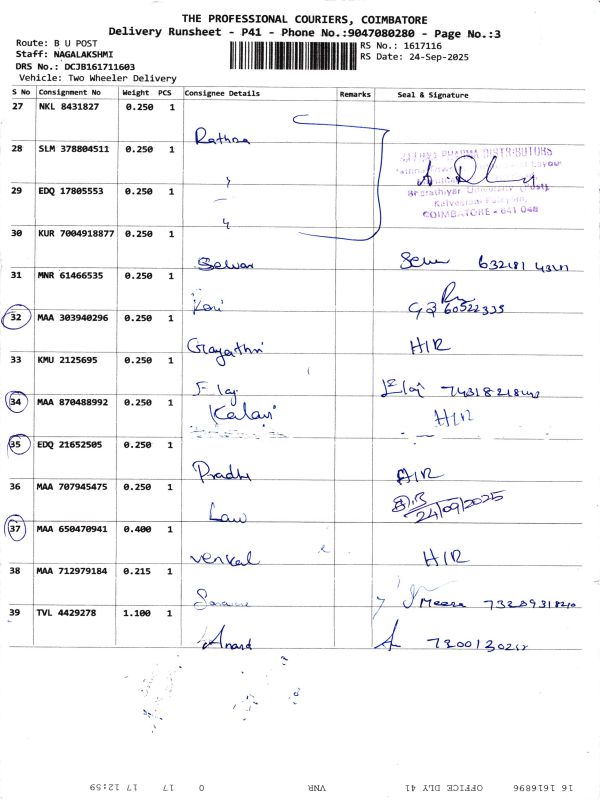 THE PROFESSIONAL COURIERS, COIMBATORE
Delivery Runsheet - P41 - Phone No.:9047080280 - Page No.:3
Route: B U POST
RS No.: 1617116
Staff: NAGALAKSHMI
RS Date: 24-Sep-2025
DRS No.: DCJB161711603
Vehicle: Two Wheeler Delivery
S No Consignment No Weight PCS Consignee Details Remarks Seal & Signature
27 NKL 8431827 0.250 1
Rathna
28 SLM 378804511 0.250 1
PHARMA DISTRIBUTORS
29 EDQ 17805553 0.250 1
Bharathiyar University (Post),
COIMBATORE - 641 046
30 KUR 7004918877 0.250 1
Selvan
31 MNR 61466535 0.250 1
Kavi
32 MAA 303940296 0.250 1
Gayathri H/R
33 KMU 2125695 0.250 1
34 MAA 870488992 0.250 1
Kalai H/R
35 EDQ 21652505 0.250 1
H/R
36 MAA 707945475 0.250 1
24/09/2025
37 MAA 650470941 0.400 1
Venkat H/R
38 MAA 712979184 0.215 1
Meera
39 TVL 4429278 1.100 1
Anand
16 1616896 OFFICE DLY 41 VNR 0 17 17 12:59